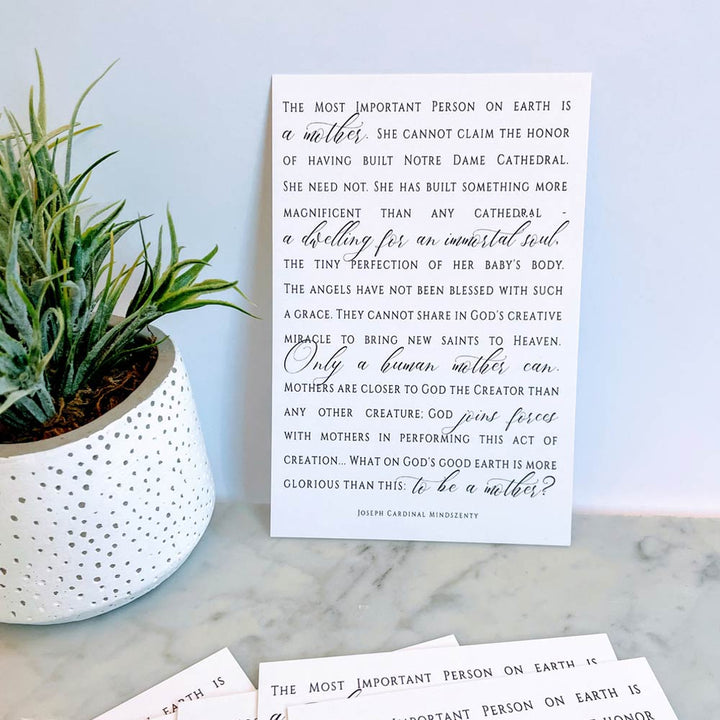 The Most Important Person on earth is
a mother. She cannot claim the honor
of having built Notre Dame Cathedral.
She need not. She has built something more
magnificent than any cathedral -
a dwelling for an immortal soul,
the tiny perfection of her baby's body.
The angels have not been blessed with such
a grace. They cannot share in God's creative
miracle to bring new saints to Heaven.
Only a human mother can.
Mothers are closer to God the Creator than
any other creature; God joins forces
with mothers in performing this act of
creation... What on God's good earth is more
glorious than this: to be a mother?
Joseph Cardinal Mindszenty
The Most Important Person on earth is
Person on earth is
is
honor